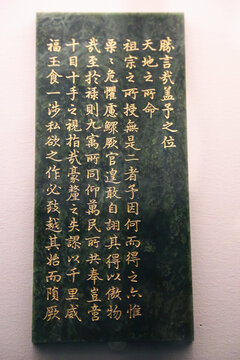 勝言哉盖予之位
天地之所命
祖宗之所授無是二者予因何而得之亦惟
栗〻危懼慮鰥厥官遑敢自詡其得以傲物
哉至於禄則九寓所同仰萬民所共奉豈啻
十目十手之視指哉豪釐之失謬以千里咸
福玉食一涉私欲之作必致越其始而隕厥